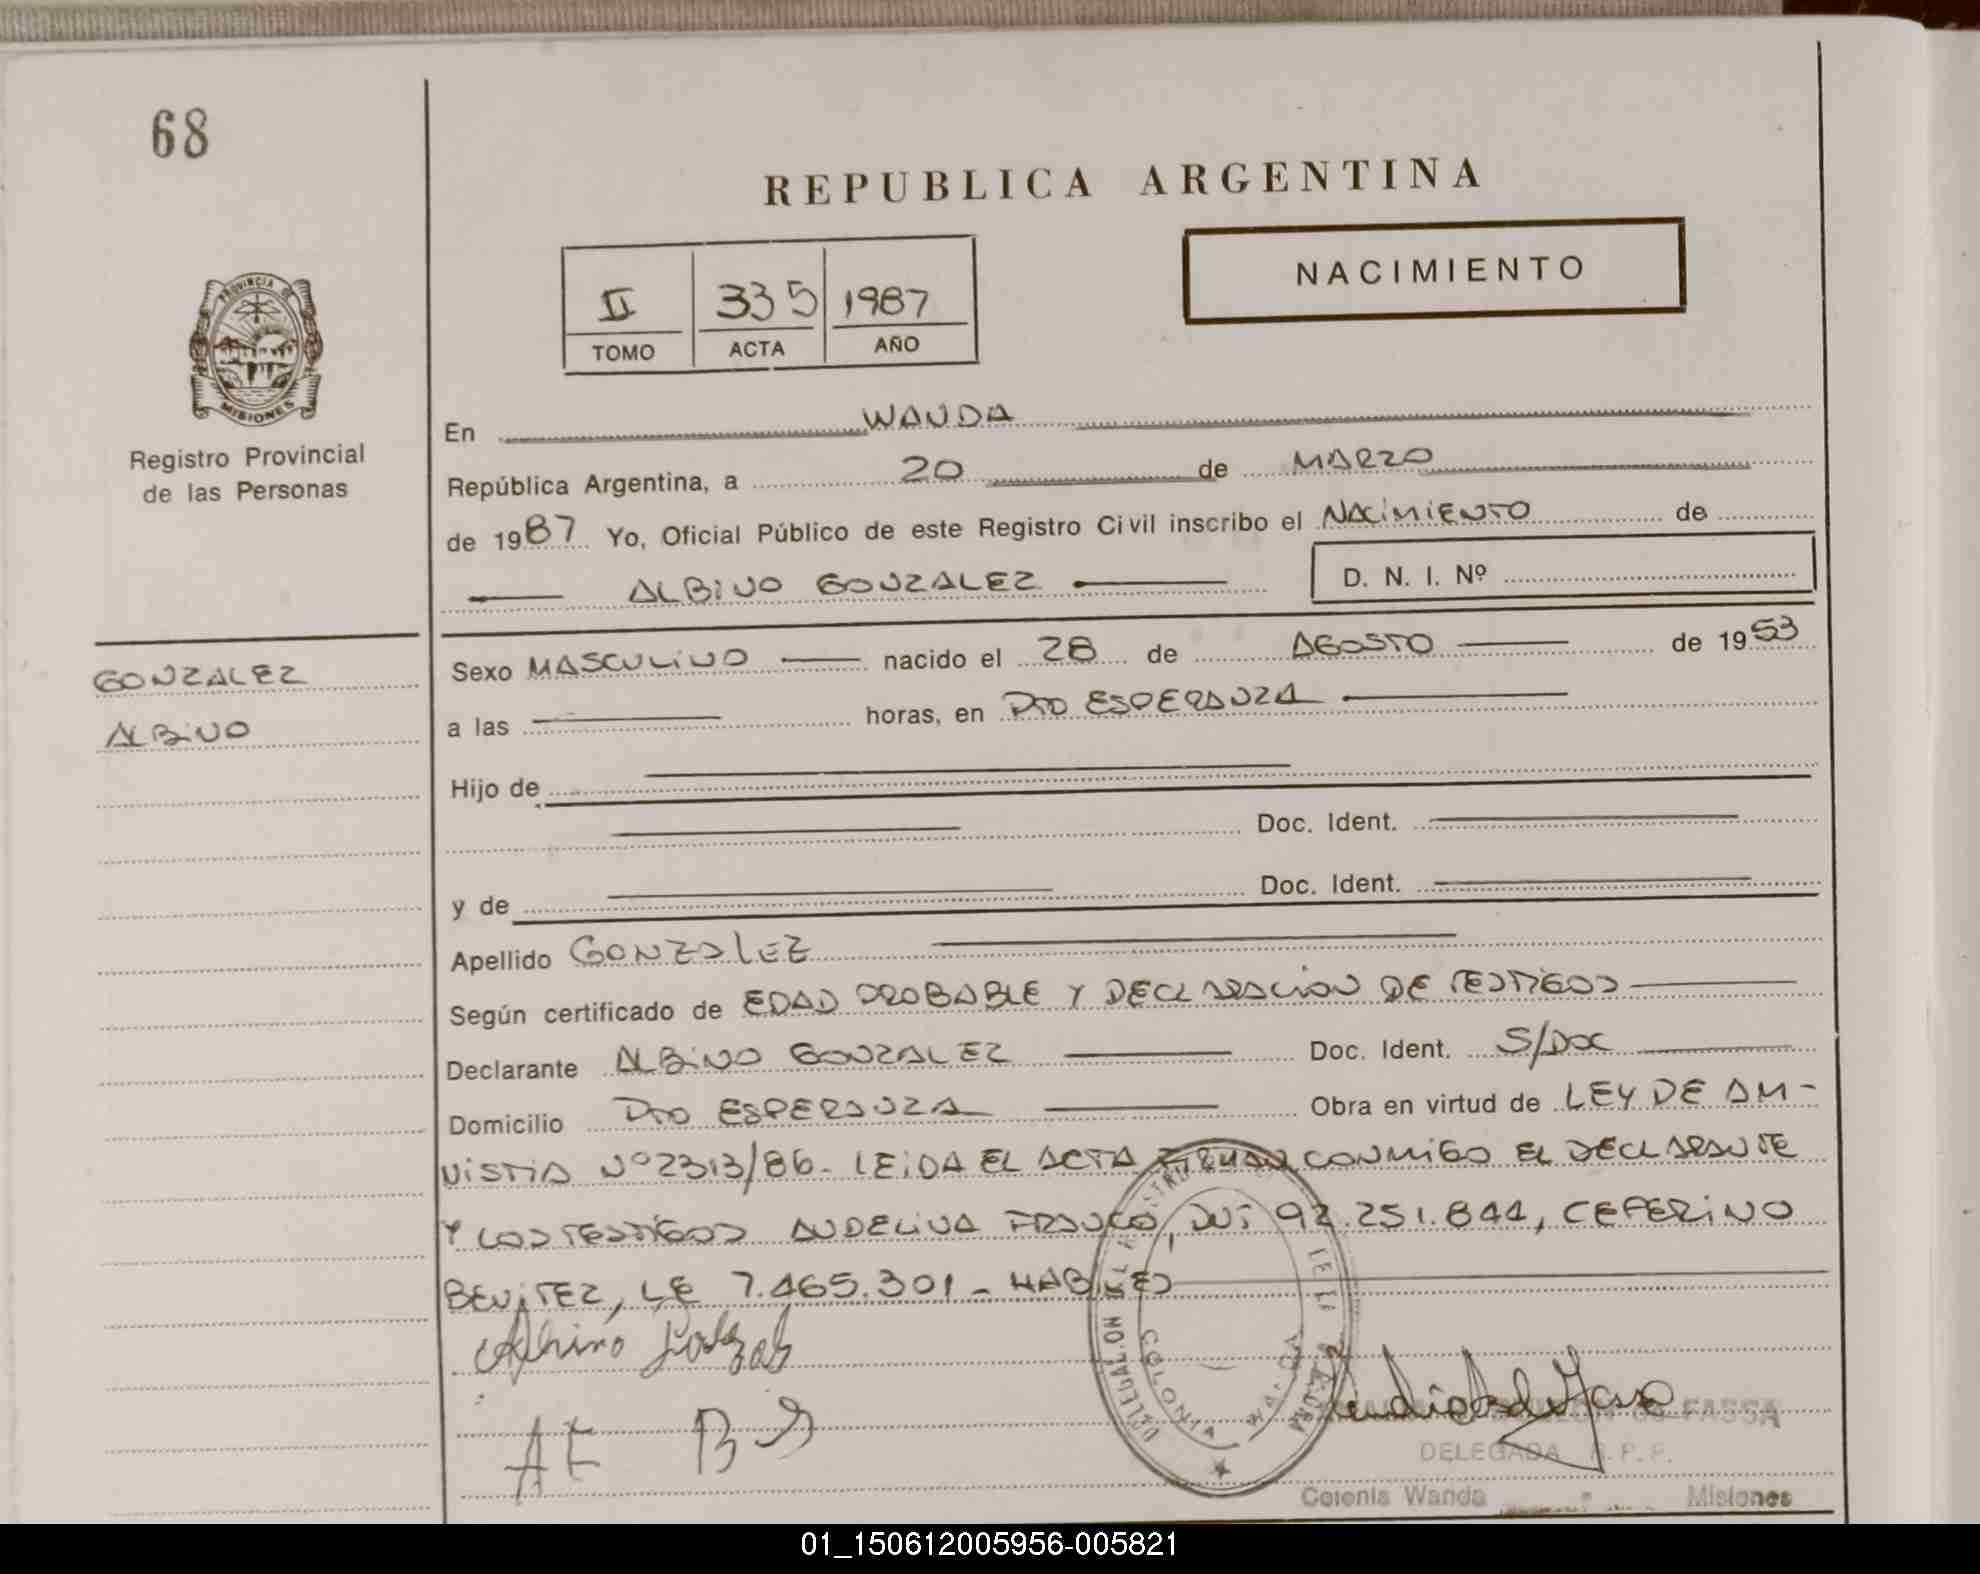 68
REPUBLICA ARGENTINA
NACIMIENTO
II 335 1987
TOMO ACTA AÑO
PROVINCIA DE
MISIONES
Registro Provincial
de las Personas
En WANDA
República Argentina, a 20 de MARZO
de 1987 Yo, Oficial Público de este Registro Civil inscribo el NACIMIENTO de
ALBINO GONZALEZ D. N. I. Nº
GONZALEZ
ALBINO
Sexo MASCULINO nacido el 28 de AGOSTO de 1953
a las horas, en PTO ESPERANZA
Hijo de
Doc. Ident.
y de Doc. Ident.
Apellido GONZALEZ
Según certificado de EDAD PROBABLE Y DECLARACION DE TESTIGOS
Declarante ALBINO GONZALEZ Doc. Ident. S/DOC
Domicilio PTO ESPERANZA Obra en virtud de LEY DE AM-
NISTIA Nº 2313/86- LEIDA EL ACTA FIRMAN CONMIGO EL DECLARANTE
Y LOS TESTIGOS AUDELINA FRANCO, DNI 92.251.844, CEFERINO
BENITEZ, LE 7.465.301- HABILES
AF B
COLONIA WANDA
DE FASSA
DELEGADA R.P.P.
Colonia Wanda Misiones
01_150612005956-005821